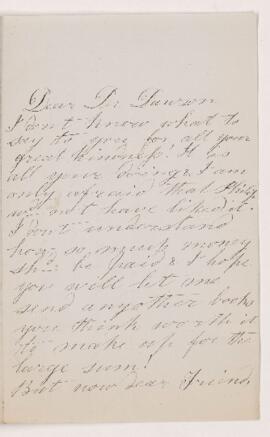 Dear Dr. Dawson
I don't know what to
say to you for all your
great kindness! It is
all your doing & I am
only afraid that Philip
wd. not have liked it.
I don't understand
how so much money
shd. be paid & I hope
you will let me
send any other books
you think worth it
to make up for the
large sum!
But now dear Friend